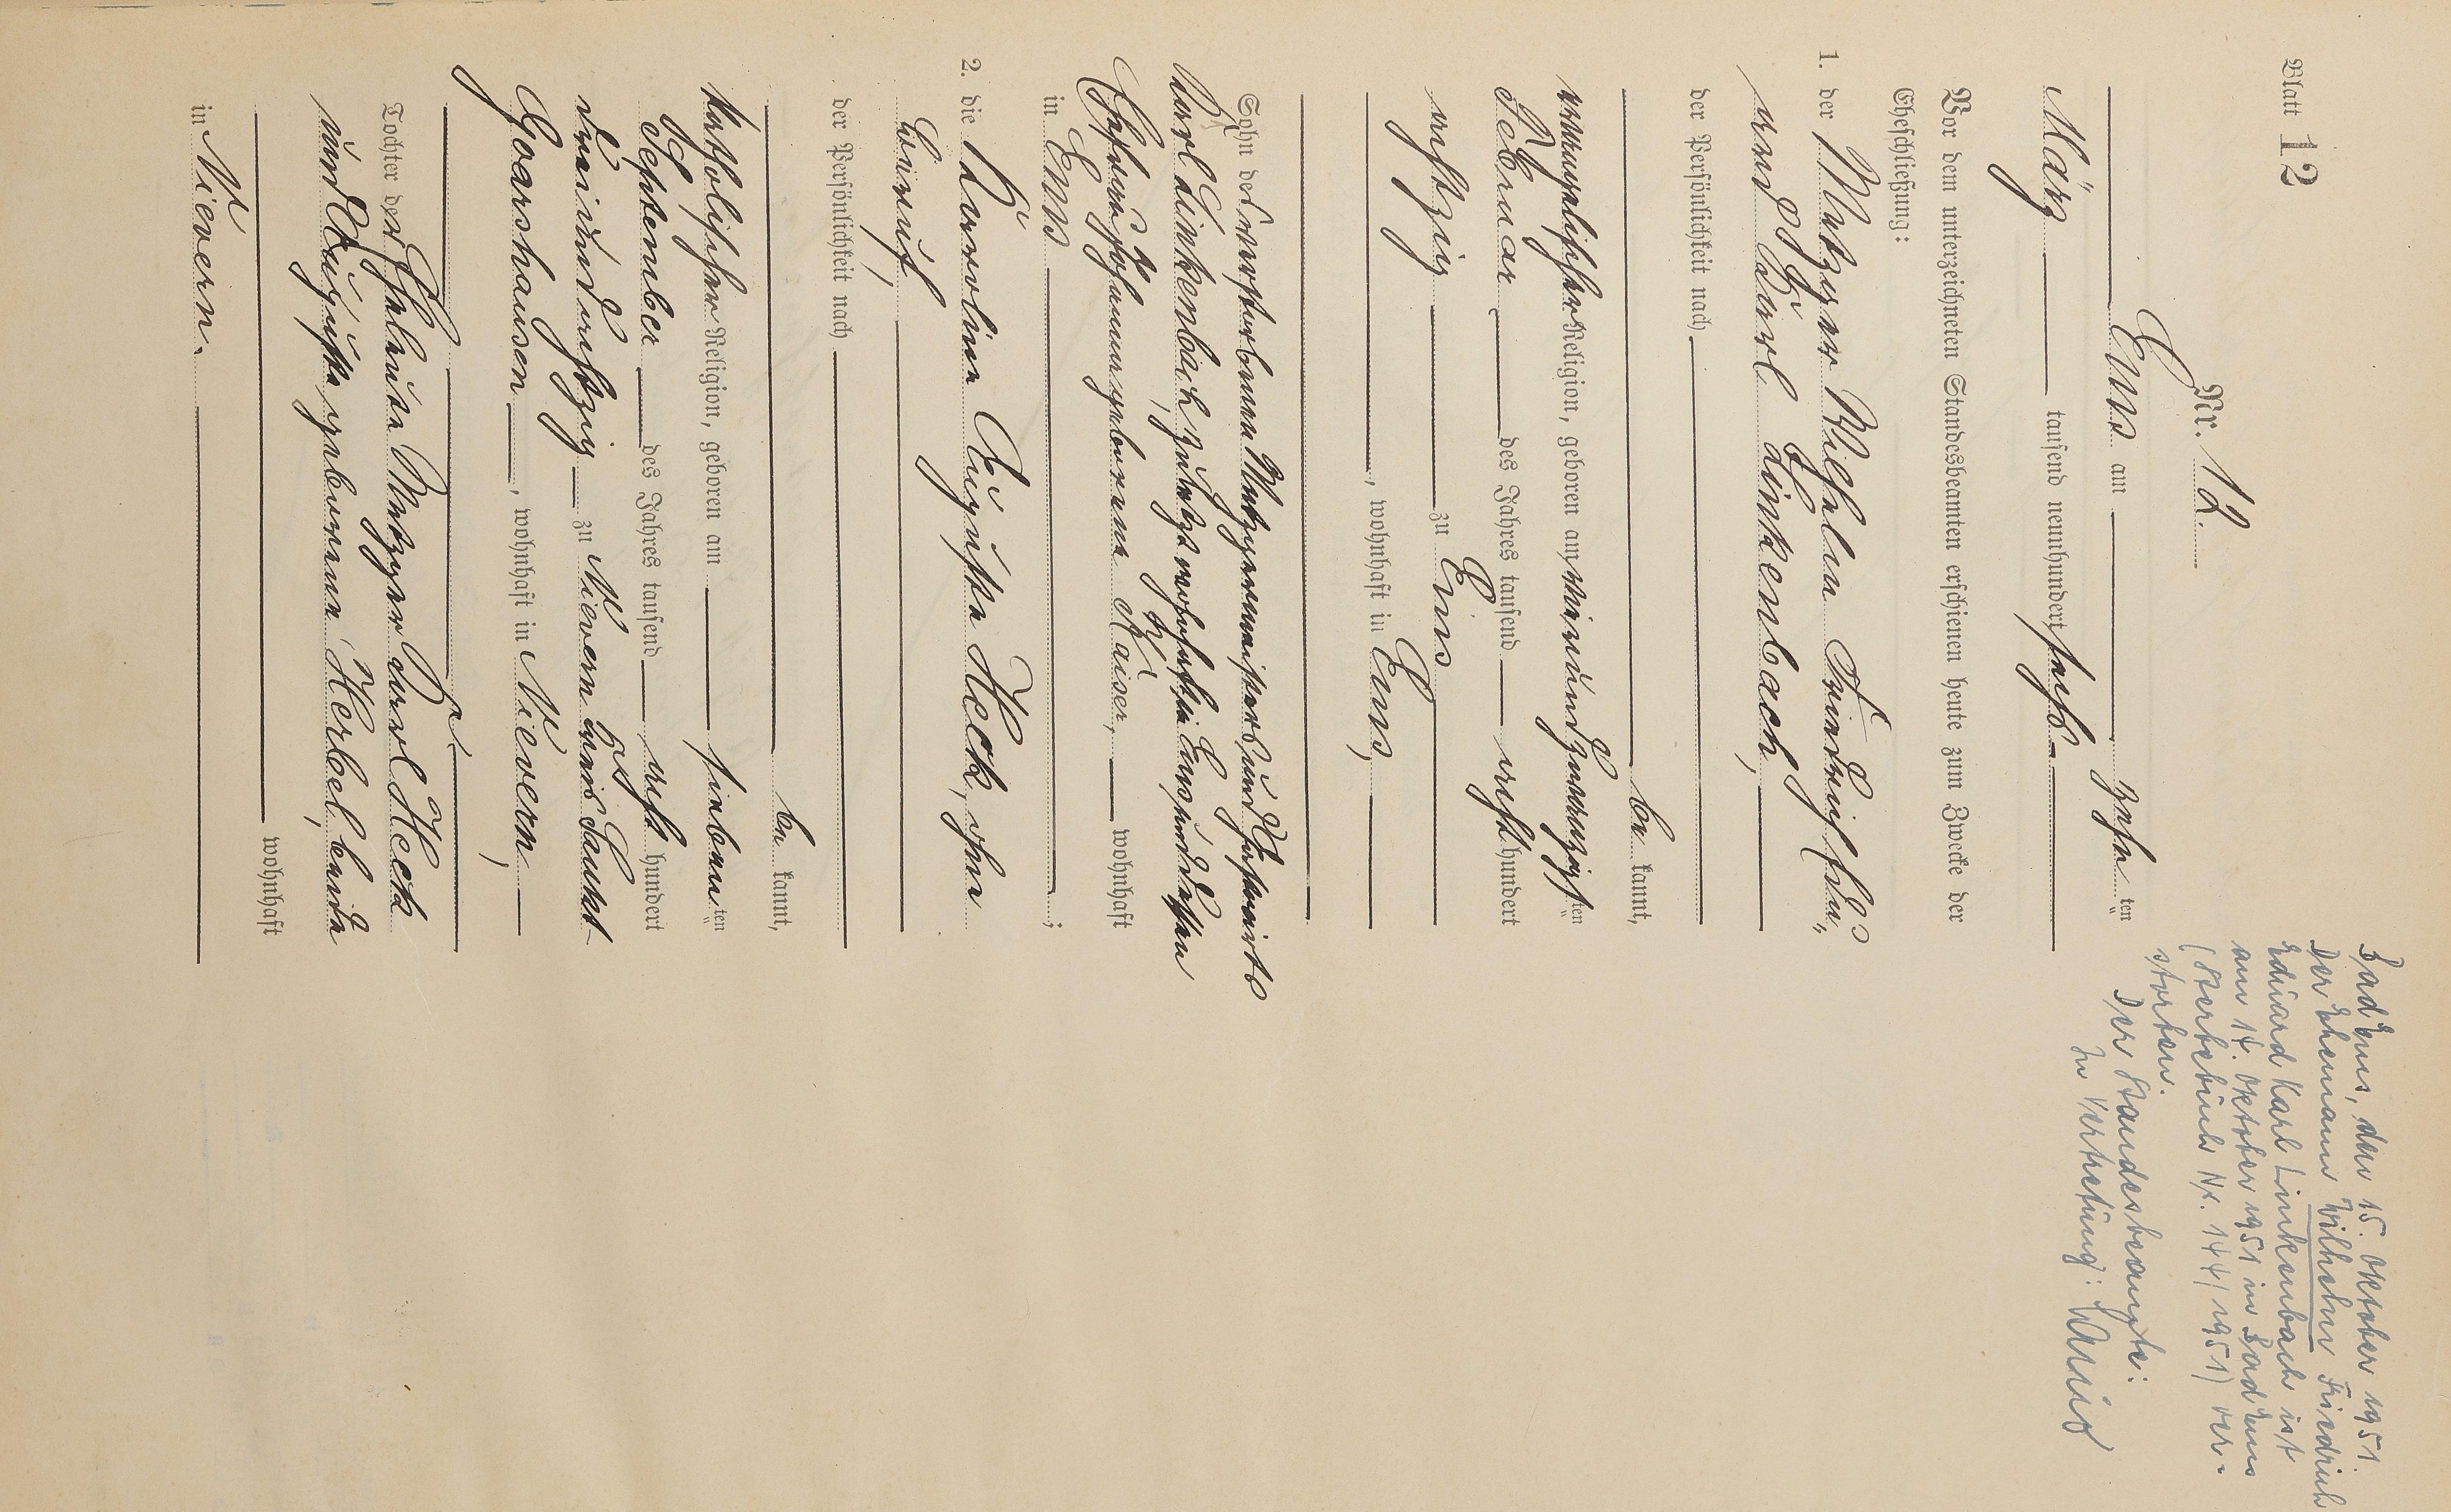 Blatt 12
Nr. 12.
Ems am zehnten
März tausend neunhundert sechs
Vor dem unterzeichneten Standesbeamten erschienen heute zum Zwecke der
Eheschließung:
1. der Metzger Wilhelm Friedrich Edu„
ard Karl Linkenbach,
der Persönlichkeit nach
be kannt,
evangelischer Religion, geboren am vierundzwanzigsten
Februar des Jahres tausend acht hundert
achtzig zu Ems
, wohnhaft in Ems,
Sohn des verstorbenen Metzgermeisters und Gastwirts
Karl Linkenbach, zuletzt wohnhaft in Ems, und dessen
Ehefrau Johanna geborene Kaiser, wohnhaft
in Ems ;
2. die Karoline Auguste Heck, ohne
Beruf,
der Persönlichkeit nach
be kannt,
katholischer Religion, geboren am siebenten
September des Jahres tausend acht hundert
dreiundachtzig zu Nievern Kreis Sankt
Goarshausen , wohnhaft in Nievern,
Tochter der Eheleute Metzger Karl Heck
und Auguste geborene Herbel, beide
wohnhaft
in Nievern.
Bad Ems, den 15. Oktober 1951.
Der Ehemann Wilhelm Friedrich
Eduard Karl Linkenbach ist
am 14. Oktober 1951 in Bad Ems
(Sterbebuch Nr. 144/1951) ver-
storben.
Der Standesbeamte:
In Vertretung: